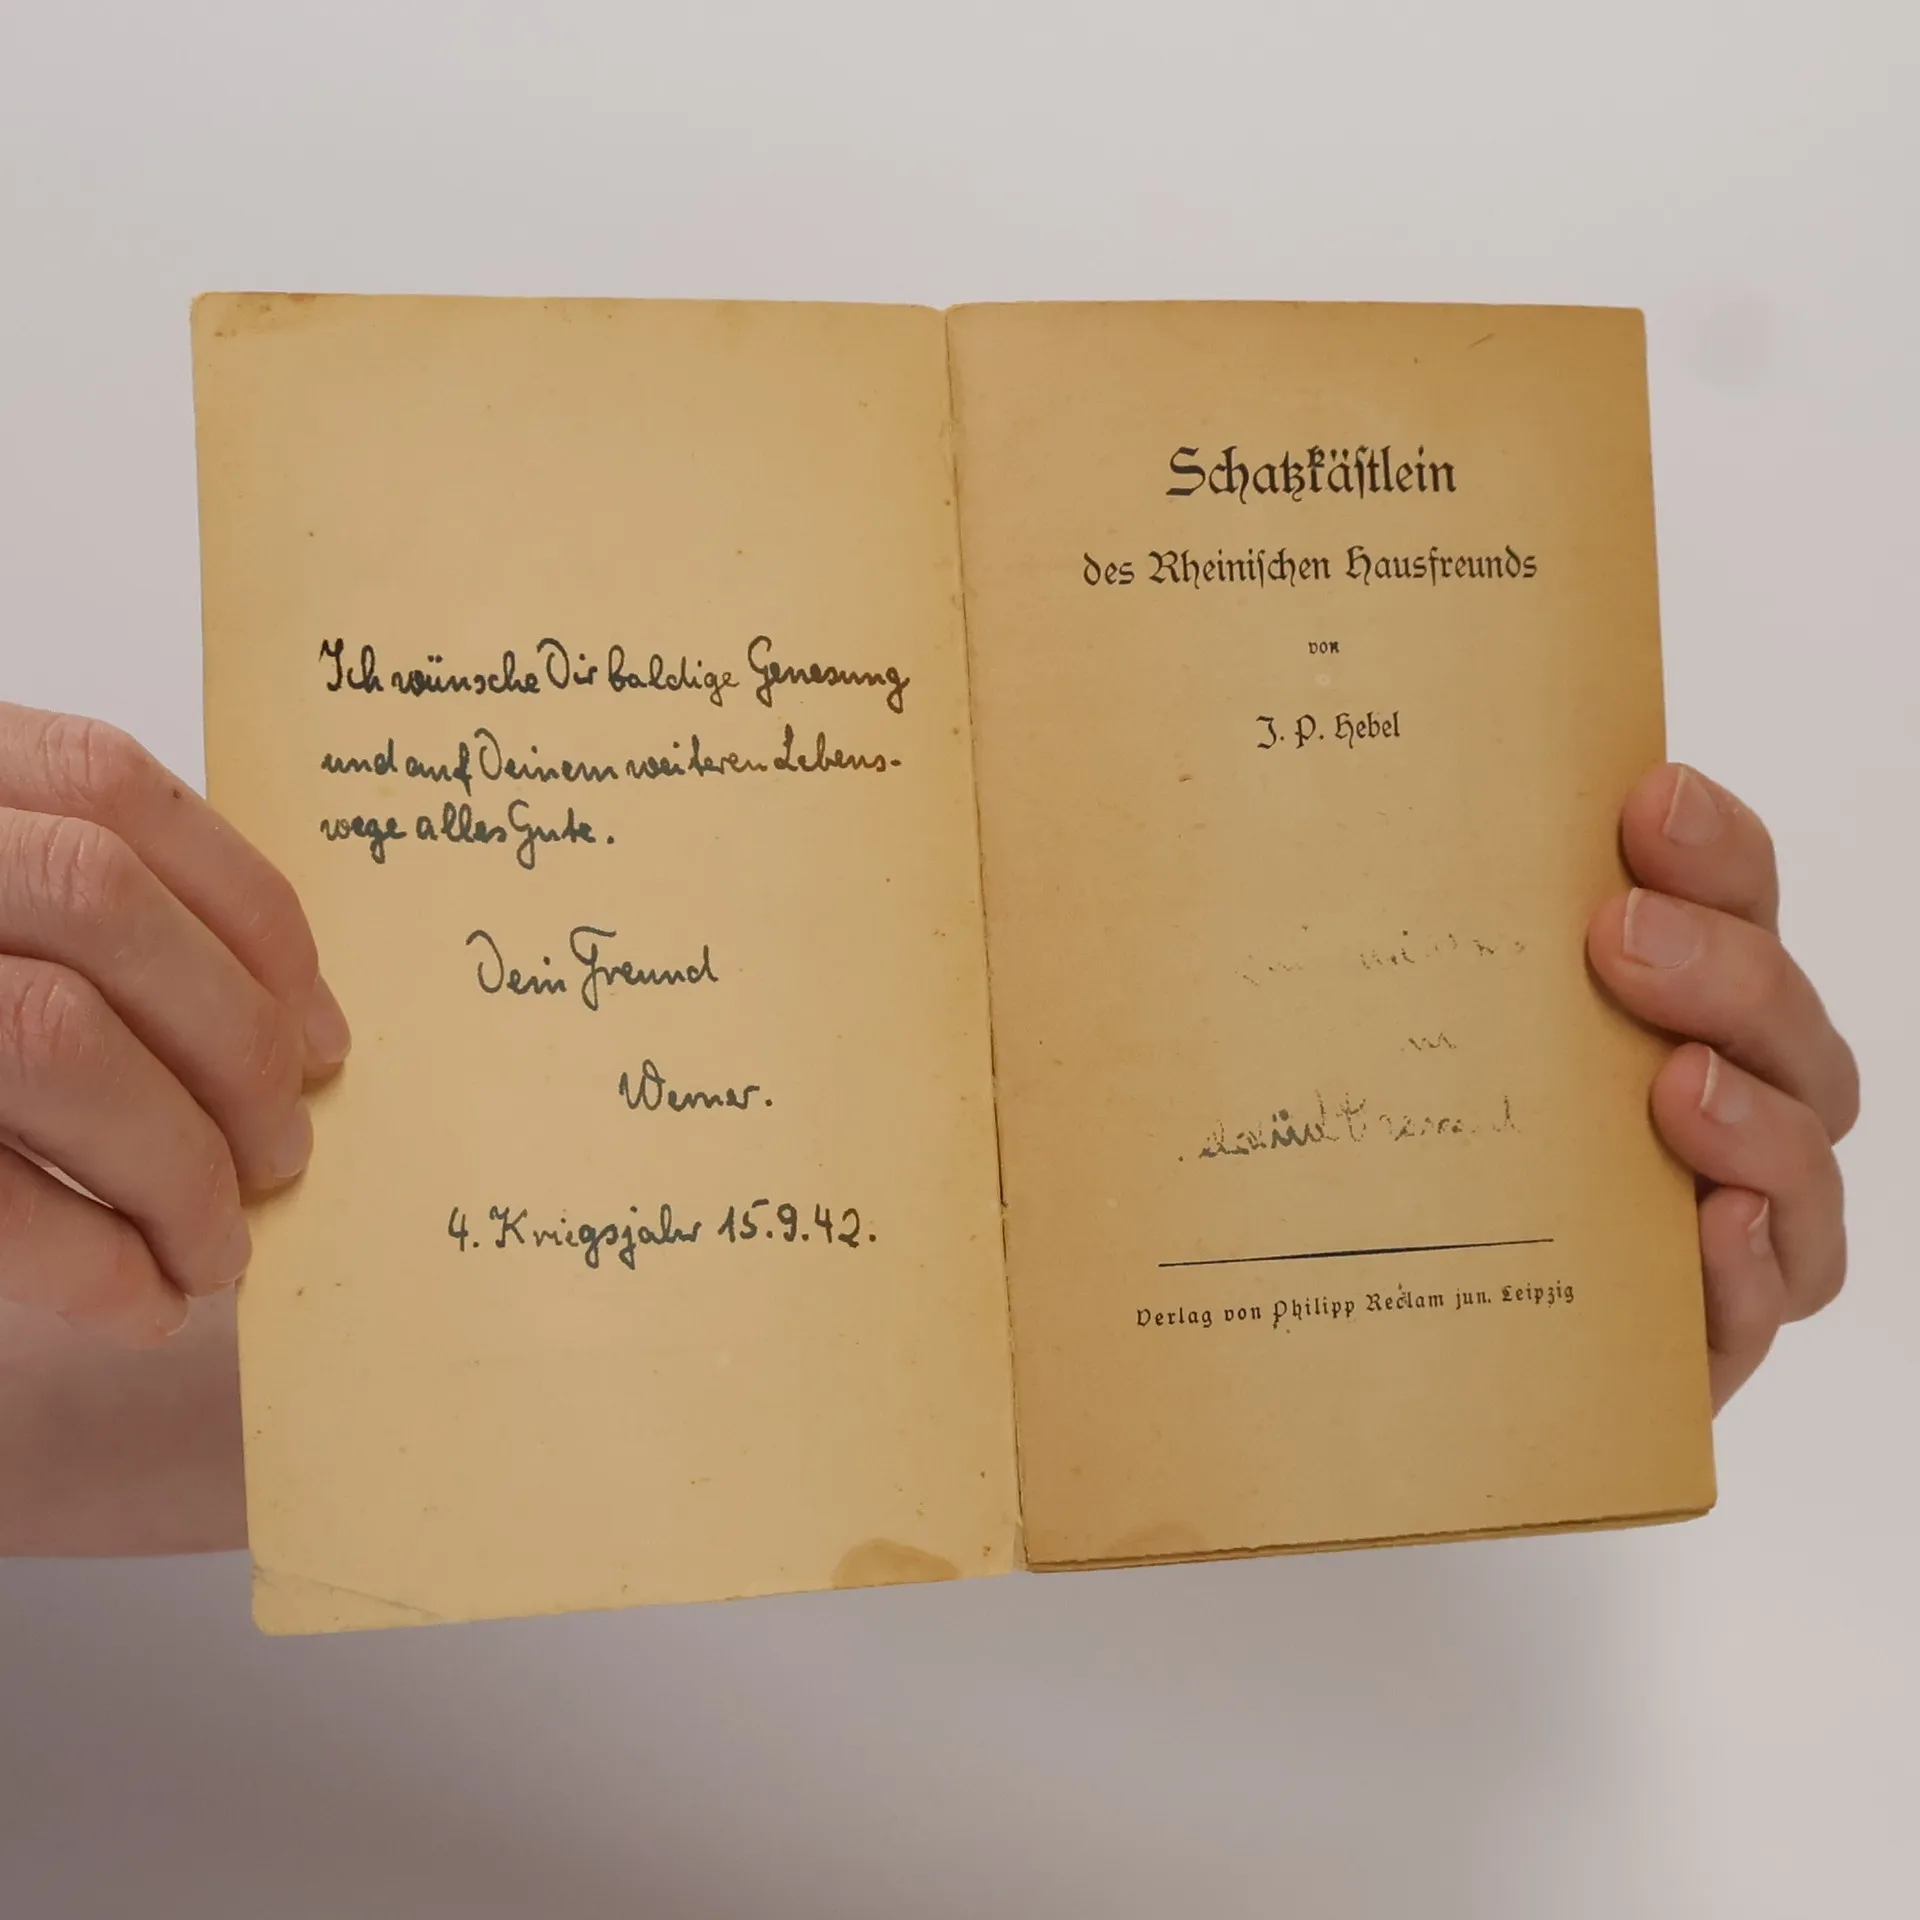 Ich wünsche Dir baldige Genesung
und auf Deinem weiteren Lebens-
wege alles Gute.
Dein Freund
Werner.
4. Kriegsjahr 15.9.42.
Schatzkäſtlein
des Rheiniſchen Hausfreunds
von
J. P. Hebel
Verlag von Philipp Reclam jun. Leipzig